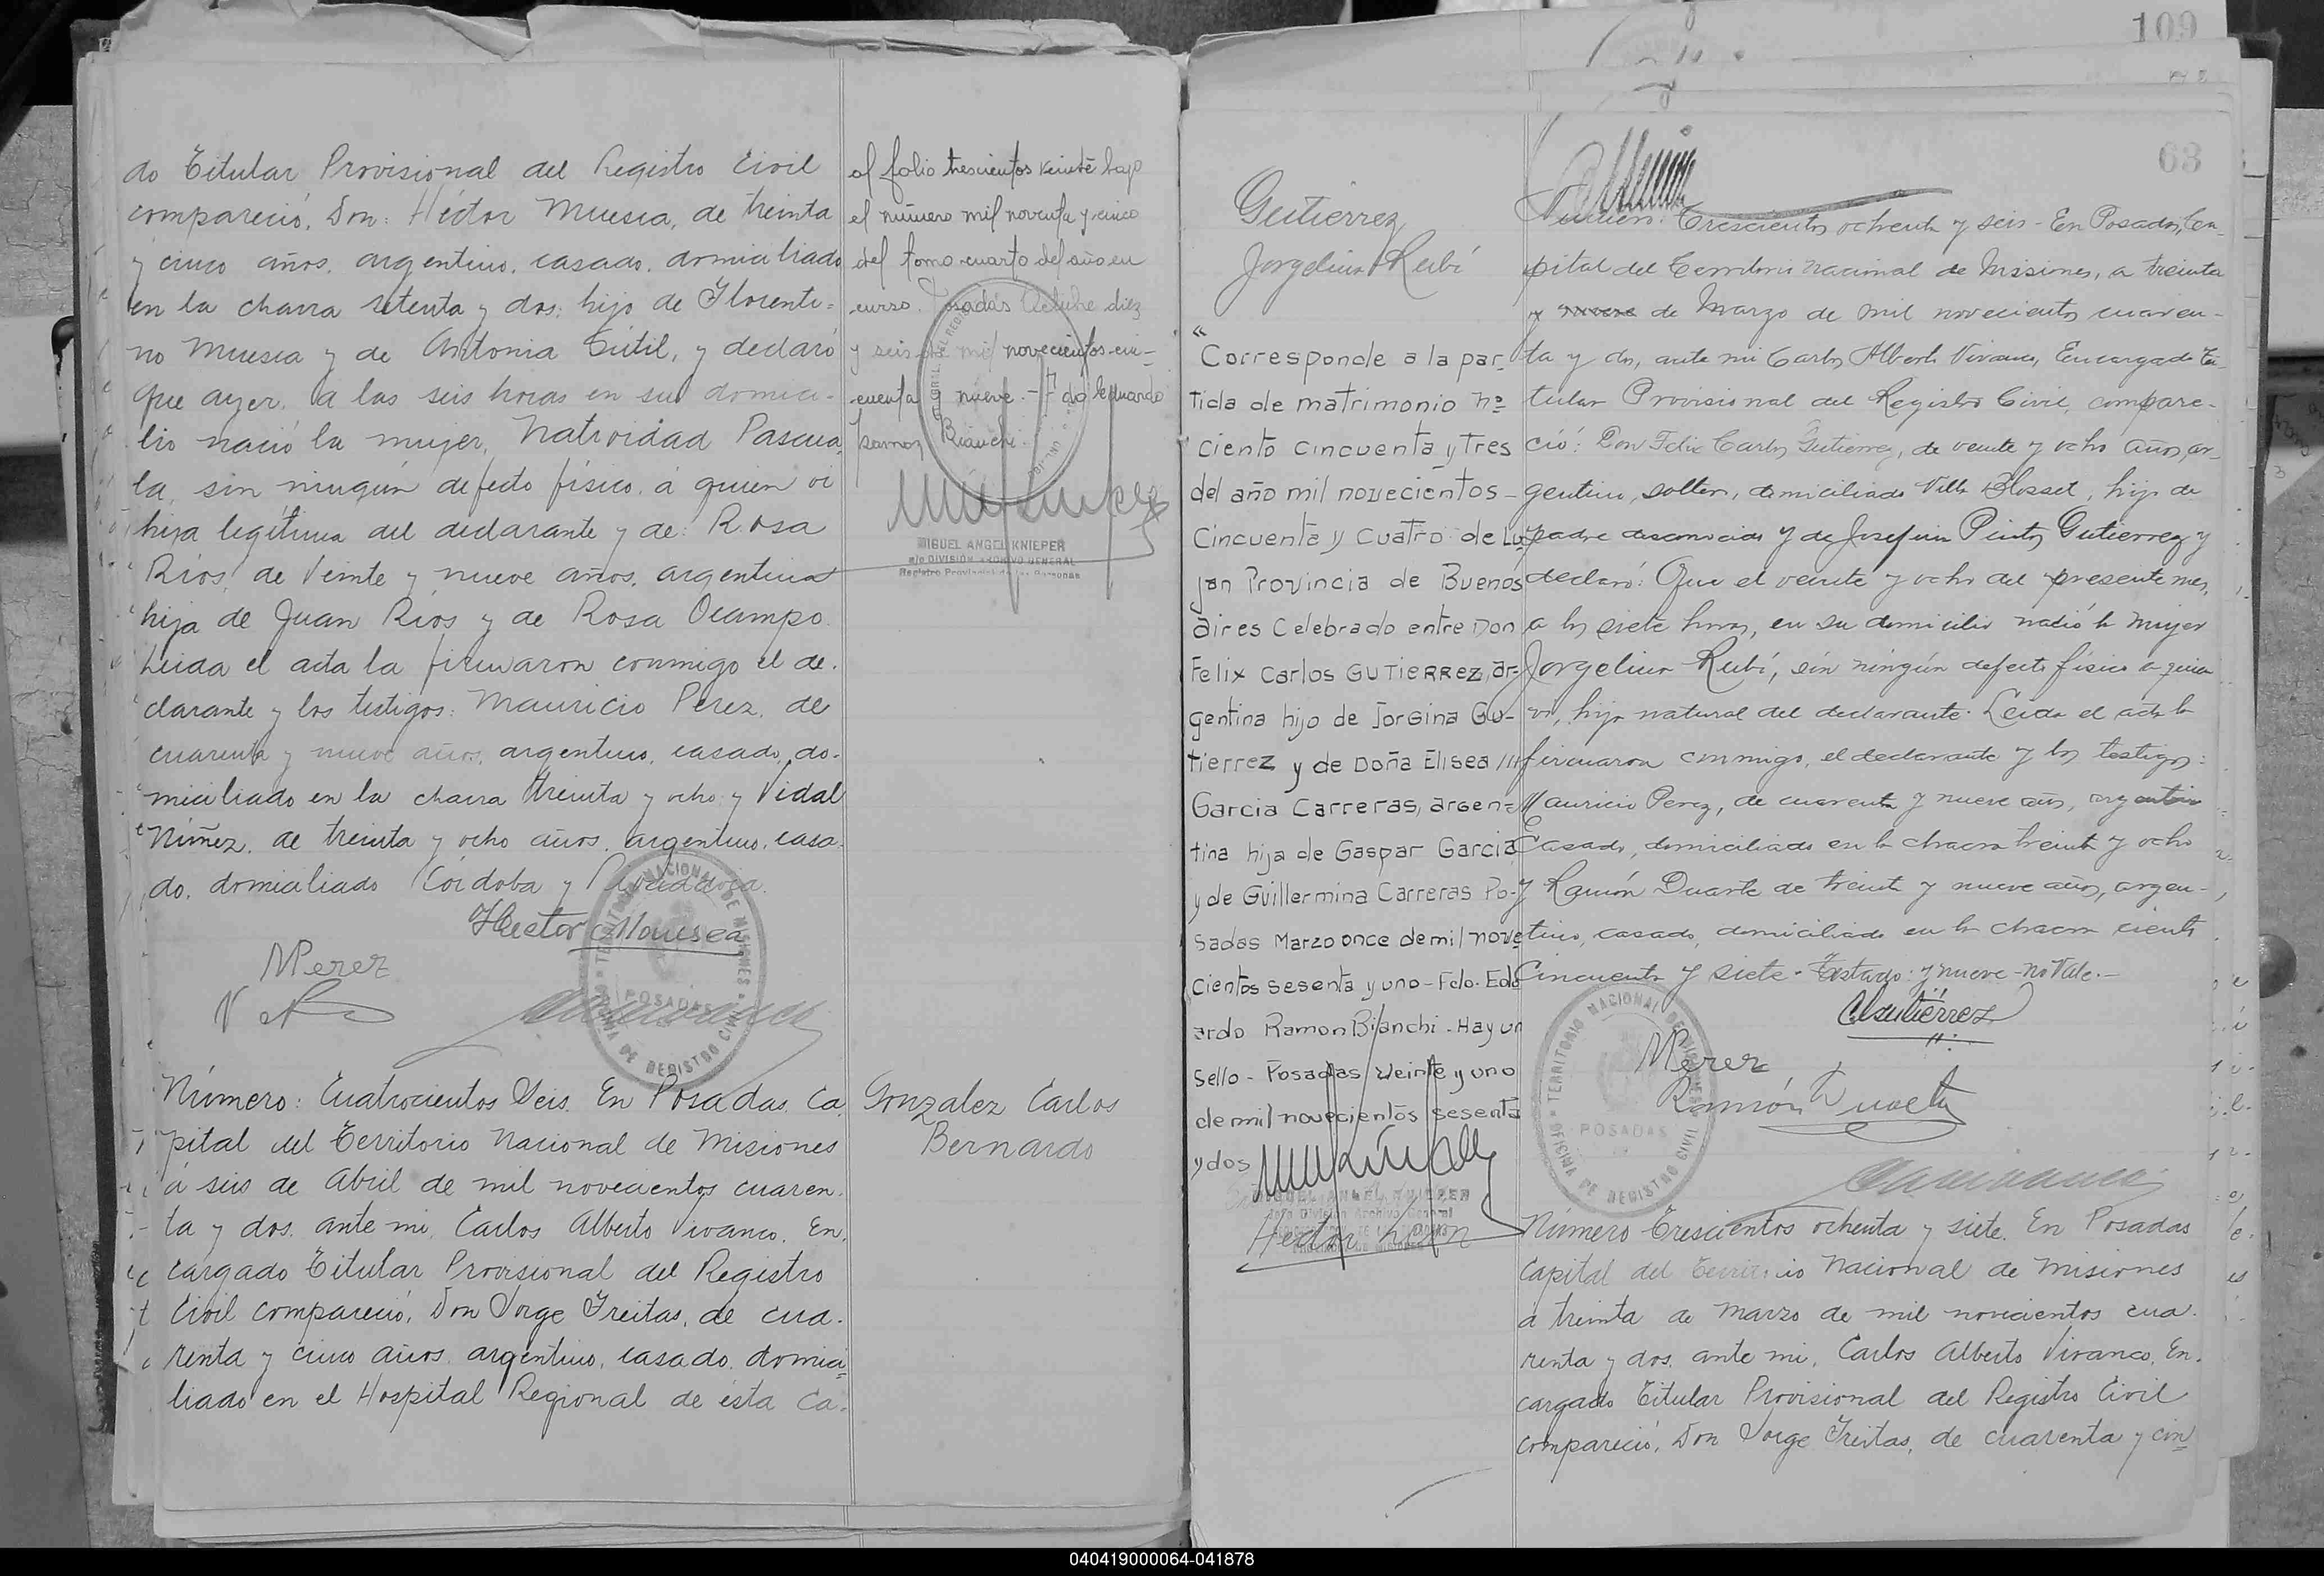 do Titular Provisional del Registro Civil
compareció, Don: Héctor Muesca, de treinta
y cinco años, argentino, casado, domiciliado
en la chacra setenta y dos; hijo de Florenti=
no Muesca y de Antonia Gútil, y declaró
que ayer, a las seis horas en su domici-
lio nació la mujer, Natividad Pascua
la, sin ningún defecto físico, á quien vi
hija legítima del declarante y de: Rosa
Ríos, de veinte y nueve años, argentina
hija de Juan Ríos y de Rosa Ocampo.
Leida el acta la firmaron conmigo el de.
clarante y los testigos: Mauricio Perez, de
cuarenta y nueve años, argentino, casado, do-
miciliado en la chacra treinta y ocho y Vidal
Nuñez, de treinta y ocho años, argentino, casa.
do, domiciliado Córdoba y Rivadavia.
Hector Mousca
MPerez
TERRITORIO NACIONAL DE MISIONES
POSADAS
OFICINA DE REGISTRO CIVIL
Número: Cuatrocientos Seis. En Posadas, Ca
pital del Territorio Nacional de Misiones
á seis de Abril de mil novecientos cuaren.
ta y dos, ante mi, Carlos Alberto Vivanco, En.
cargado Titular Provisional del Registro
Civil compareció, Don Jorge Freitas, de cua.
renta y cinco años, argentino, casado, domici=
liado en el Hospital Regional de ésta Ca.
al folio trescientos veinte bajo
el número mil noventa y cinco
del tomo cuarto del año en
curso. Posadas Octubre diez
y seis de mil novecientos cin-
cuenta y nueve.- Fdo Eduardo
Ramon Bianchi.
MIGUEL ANGEL KNIEPER
a/c DIVISIÓN ARCHIVO GENERAL
Registro Provincial de las Personas
Gonzalez Carlos
Bernardo
109
63
Gutierrez
Jorgelina Rubí
"Corresponde a la par-
tida de matrimonio Nº
ciento cincuenta y tres
del año mil novecientos
cincuenta y cuatro de Lu-
jan Provincia de Buenos
Aires Celebrado entre Don
Felix Carlos GUTIERREZ, ar-
gentina hijo de Jorgina Gu-
tierrez y de Doña Elisea ///
Garcia Carreras, argen=
tina hija de Gaspar Garcia
y de Guillermina Carreras Po-
sadas Marzo once de mil nove
cientos sesenta y uno - Fdo. Edu
ardo Ramon Bianchi - Hay un
sello - Posadas veinte y uno
de mil novecientos sesenta
y dos
MIGUEL ANGEL KNIEPER
Jefe División Archivo General
Número: Trescientos ochenta y seis - En Posadas, Ca-
pital del Territorio Nacional de Misiones, a treinta
y nueve de Marzo de mil novecientos cuaren-
ta y dos, ante mi Carlos Alberto Vivanco, Encargado Ti-
tular Provisional del Registro Civil, compare-
ció: Don Felix Carlos Gutierrez, de veinte y ocho años, ar-
gentino, soltero, domiciliado Villa Blosset, hijo de
padre desconocido y de Josefina Pinto Gutierrez y
declaró: Que el veinte y ocho del presente mes,
a las siete horas, en su domicilio nació la mujer
Jorgelina Rubí, sin ningún defecto físico a quien
vi, hija natural del declarante. Leida el acta la
firmaron conmigo, el declarante y los testigos:
Mauricio Perez, de cuarenta y nueve años, argentino
Casado, domiciliado en la chacra treinta y ocho
y Ramón Duarte de treinta y nueve años, argen-
tino, casado, domiciliado en la chacra ciento
Cincuenta y siete - Testado: y nueve - no Vale.-
CGutiérrez
MPerez
Ramón Duarte
TERRITORIO NACIONAL DE MISIONES
POSADAS
OFICINA DE REGISTRO CIVIL
Número Trescientos ochenta y siete. En Posadas
Capital del Territorio Nacional de Misiones
a treinta de Marzo de mil novecientos cua.
renta y dos, ante mi, Carlos Alberto Vivanco, En.
cargado Titular Provisional del Registro Civil
compareció, Don Jorge Freitas, de cuarenta y cin=
040419000064-041878